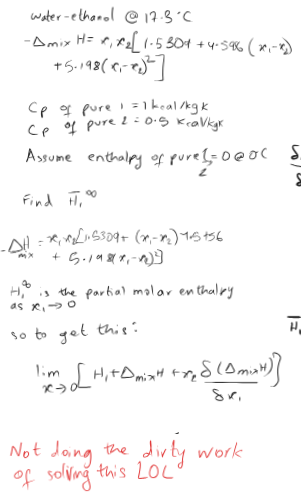 water-ethanol @ 17.3°C
-Δmix H = x₁x₂[1.5309 + 4.546(x₁-x₂)
+5.198(x₁-x₂)²]
Cp of pure 1 = 1 kcal/kg K
Cp of pure 2 = 0.5 Kcal/kgK
Assume enthalpy of pure = 0 @ 0C
Find H̄₁^∞
-ΔH mix = x₁x₂[1.5309 + (x₁-x₂)
+ 5.198(x₁-x₂)²]
H̄₁^∞ is the partial molar enthalpy
as x₁→0
so to get this:
lim x→0 [H₁ + ΔmixH + x₂ δ(ΔmixH)/δx₁]
δ
δ
H̄₁
Not doing the dirty work
of solving this LOL